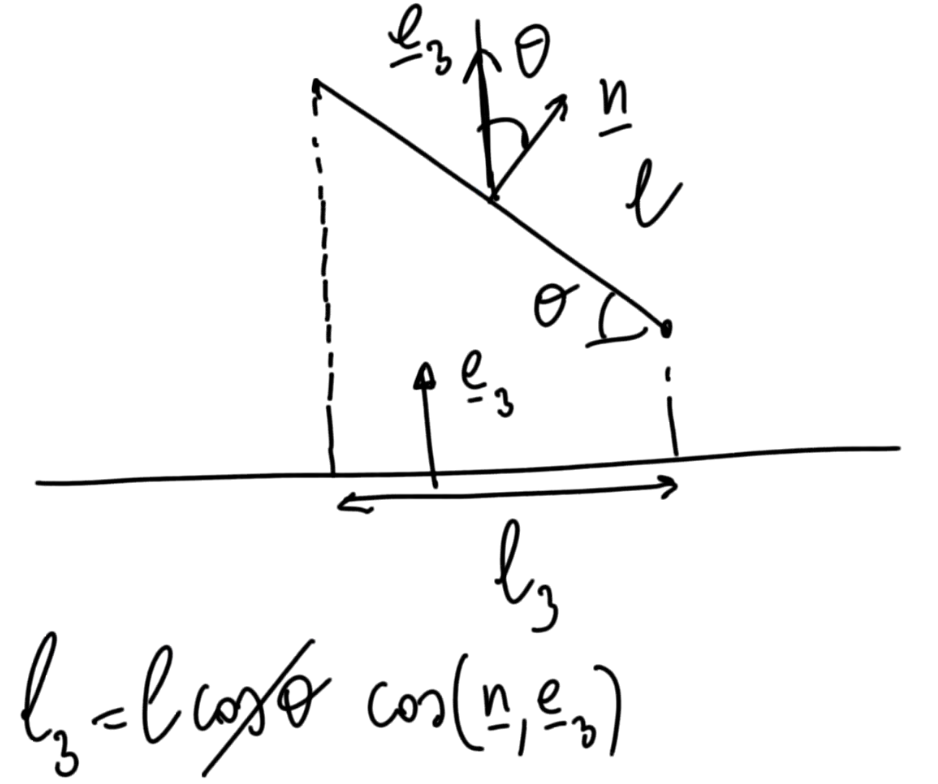 e₃ θ
n
l
θ
e₃
l₃
l₃ = l cosθ cos(n, e₃)